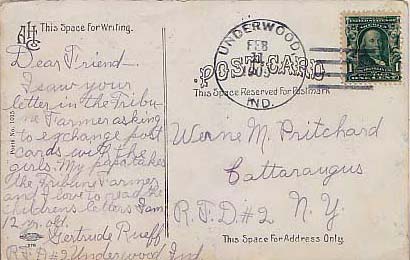 AHC
This Space For Writing.
Dear Friend—
I saw your
letter in the Tribu-
ne Farmer asking
to exchange post
cards with the
girls. My papa takes
the Tribune Farmer
and I love to read the
childrens letters I am
12 m. old.
Gertrude Rueff
R.F.D#2 Underwood Ind
UNDERWOOD
FEB
11
IND.
POST CARD
This Space Reserved For Postmark
Verne M. Pritchard
Cattaraugus
R.F.D#2 N.Y.
This Space For Address Only.